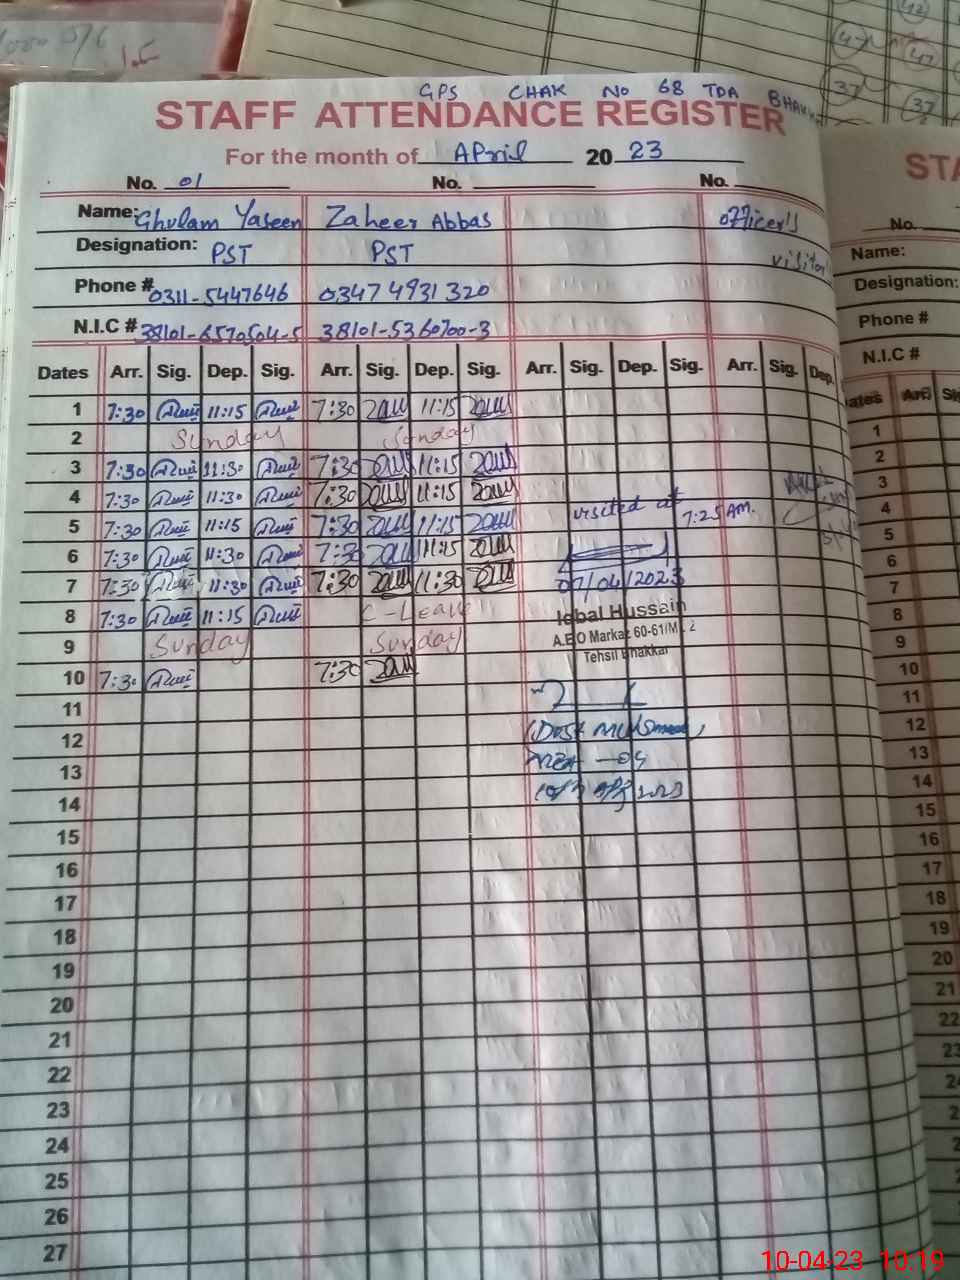 GPS CHAK NO 68 TDA BHAKKAR
STAFF ATTENDANCE REGISTER
For the month of April 2023
No. 01 No. No.
Name: Ghulam Yaseen Zaheer Abbas officer's
Designation: PST PST visitor
Phone # 0311-5447646 0347 4931320
N.I.C # 38101-6570504-5 38101-5360700-3
Dates Arr. Sig. Dep. Sig. Arr. Sig. Dep. Sig. Arr. Sig. Dep. Sig. Arr. Sig. Dep.
1 7:30 11:15 7:30 11:15
2 Sunday Sunday
3 7:30 11:30 7:30 11:15
4 7:30 11:30 7:30 11:15
visited at 7:25 AM.
5 7:30 11:15 7:30 11:15
6 7:30 11:30 7:30 11:15
7 7:30 11:30 7:30 11:30 07/04/2023
8 7:30 11:15 C-Leave Iqbal Hussain
A.E.O Markaz 60-61/M.L 2
9 Sunday Sunday Tehsil Bhakkar
10 7:30 7:30
11
12
13
14
15
16
17
18
19
20
21
22
23
24
25
26
27
STA
No.
Name:
Designation:
Phone #
N.I.C #
Dates Arr. Si
1
2
3
4
5
6
7
8
9
10
11
12
13
14
15
16
17
18
19
20
21
22
23
47
42
47
37
37
10-04-23 10:19